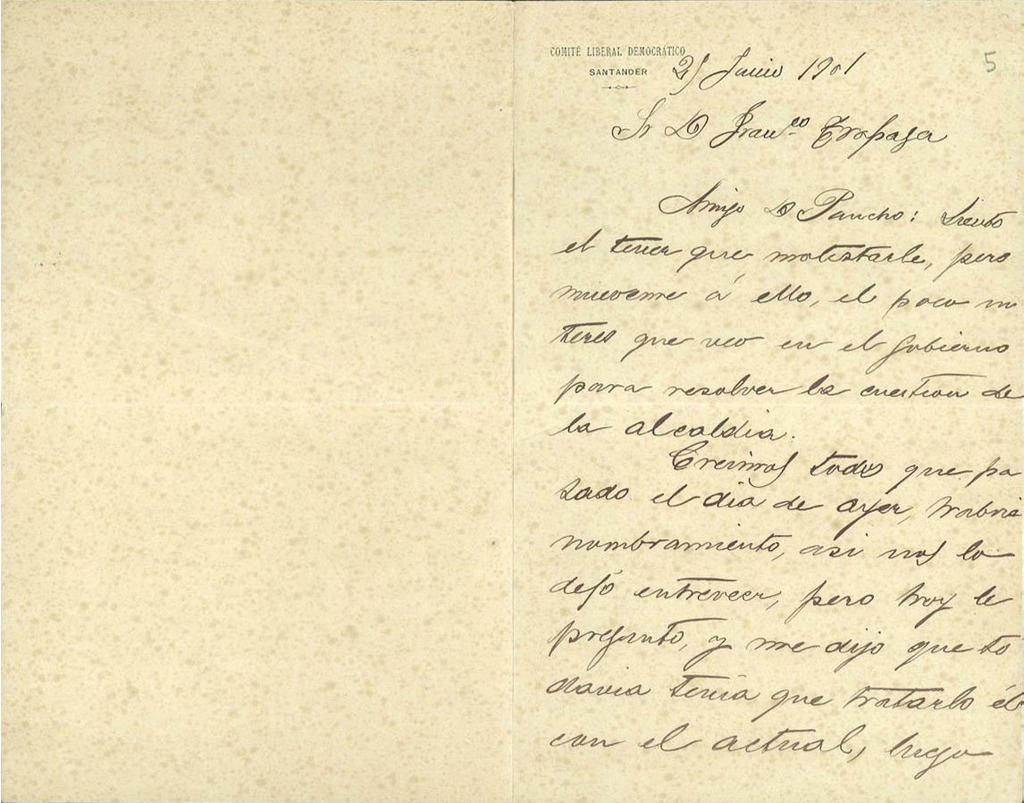 COMITÉ LIBERAL DEMOCRÁTICO
SANTANDER
Junio 1901
5
Sr D Franco Trapaga
Amigo D Pancho: Siento
el tener que molestarle, pero
mueveme á ello, el poco in
teres que veo en el Gobierno
para resolver la cuestion de
la alcaldia.
Creimos todos que pa
sado el dia de ayer, habria
nombramiento, asi nos lo
dejó entreveer, pero hoy le
pregunto, y me dijo que to
davia tenia que tratarlo él
con el actual, luego